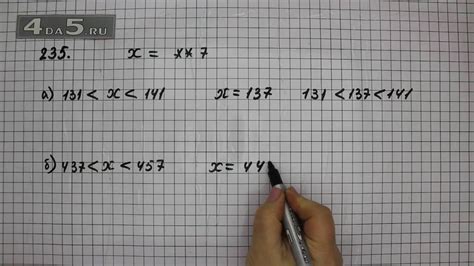 4DA5.RU
235. x = **7
а) 131 < x < 141 x = 137 131 < 137 < 141
б) 437 < x < 457 x = 44